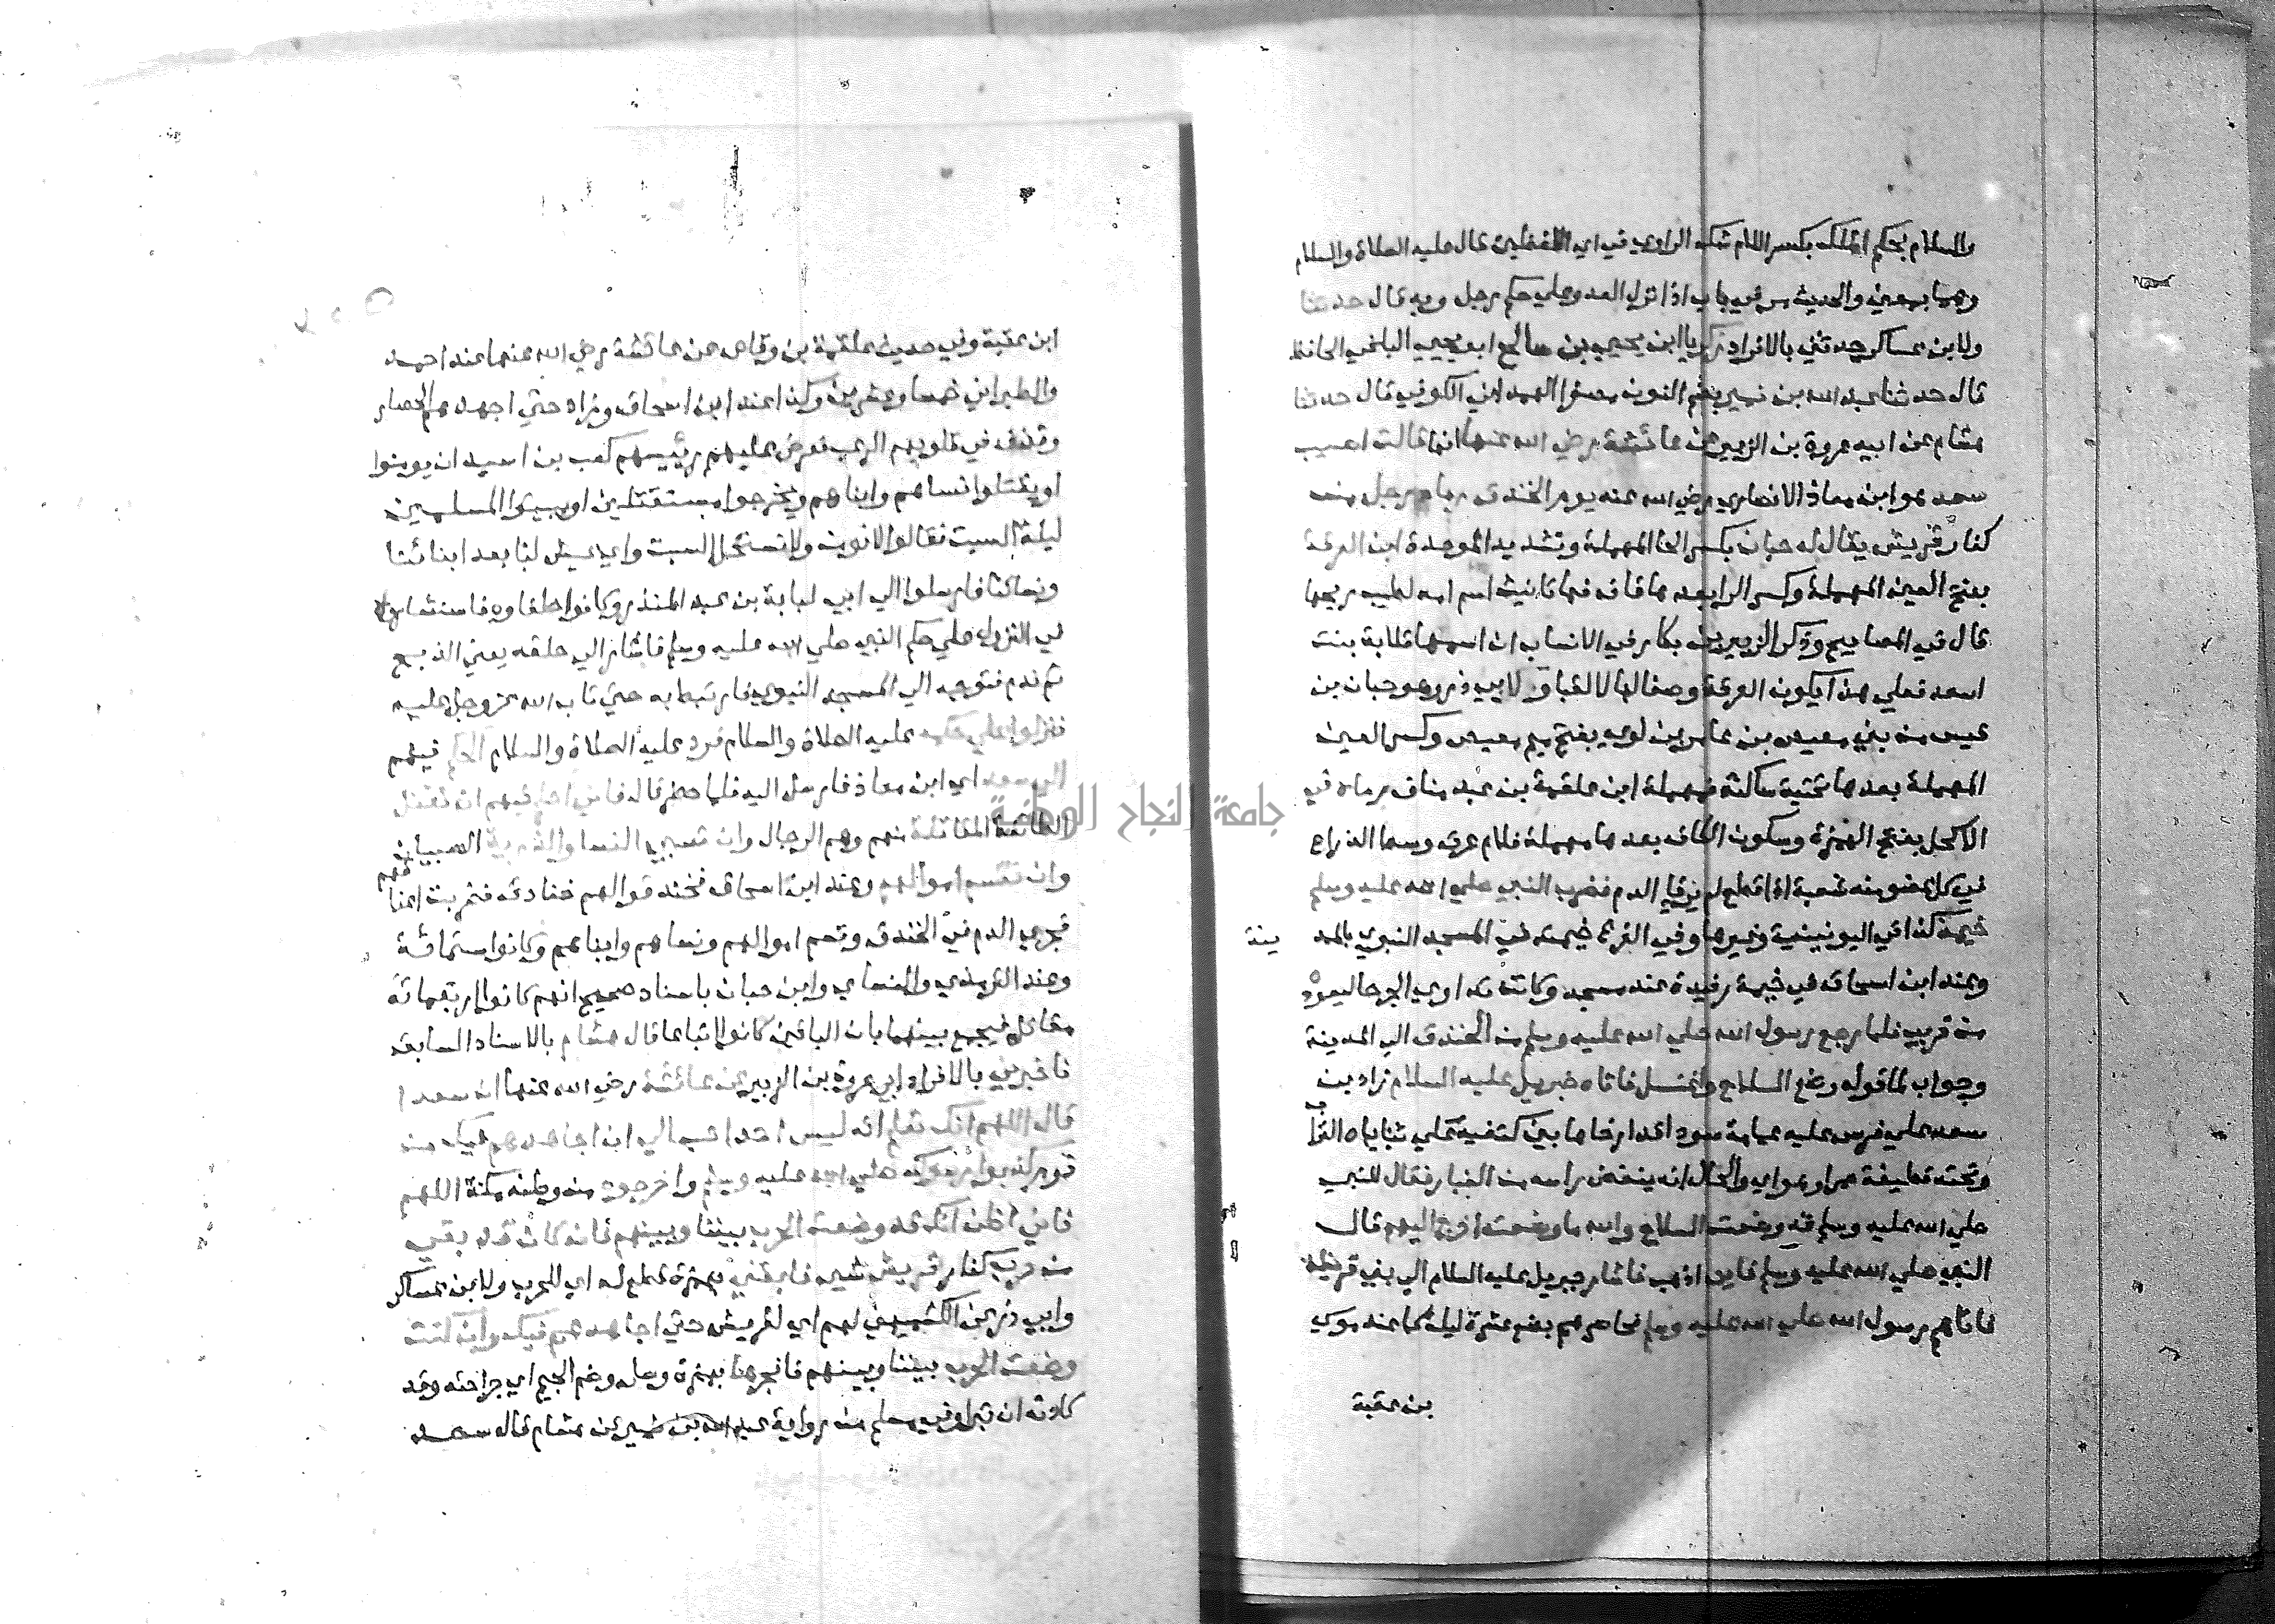 والسلام بحكم الملك بكسر اللام شك الراوي في اي اللفظين قال عليه الصلاة والسلام
وهما بمعني والحديث مر في باب اذا نزل العدو علي حكم رجل وبه قال حدثنا
ولابن عساكر حدثني بالافراد زكريا ابن يحيي بن صالح ابو يحيي البلخي الحافظ
قال حدثنا عبد الله بن نمير بضم النون مصغرا الهمداني الكوفي قال حدثنا
هشام عن ابيه عروة بن الزبير عن عائشة رضي الله عنها انها قالت اصيب
سعد هو ابن معاذ الانصاري رضي الله عنه يوم الخندق رماه رجل من
كفار قريش يقال له حبان بكسر الحا المهملة وتشديد الموحدة ابن العرقة
بفتح العين المهملة وكسر الرا بعدها قاف فها تانيث اسم امه لطيب ريحها
قال في المصابيح وذكر الزبير بن بكار في الانساب ان اسمها قلابة بنت
اسعد فعلي هذا يكون العرقة وصفا لها لا لقبا ولابي ذر وهو حبان بن
قيس من بني معيص بن عامر بن لوي بفتح ميم معيص وكسر العين
المهملة بعدها تحتية ساكنة فمهملة ابن علقمة بن عبد مناف رماه في
الاكحل بفتح الهمزة وسكون الكاف بعدها مهملة فلام عرق وسط الذراع
في كل عضو منه شعبة اذا قطع لم يرقا الدم فضرب النبي صلي الله عليه وسلم
خيمة كذا في اليونينية وغيرها وفي الفرع خيمته في المسجد النبوي بالمد ينة
وعند ابن اسحاق في خيمة رفيدة عند مسجد وكانت تداوي الجرحا ليعوده
من قريب فلما رجع رسول الله صلي الله عليه وسلم من الخندق الي المدينة
وجواب لما قوله وضع السلاح واغتسل فاتاه جبريل عليه السلام زاد بن
سعد علي فرس عليه عمامة سودا قد ارخاها بين كتفيه علي ثناياه الغبار
وتحته قطيفة حمرا وهو اي والحال انه ينفض راسه من الغبار فقال للنبي
صلي الله عليه وسلم قد وضعت السلاح والله ما وضعته اخرج اليهم قال
النبي صلي الله عليه وسلم فاين اذهب فاشار جبريل عليه السلام الي بني قريظة
فاتاهم رسول الله صلي الله عليه وسلم فحاصرهم بضع عشرة ليلة كما عند موسي
بن عقبة
ابن عقبة وفي حديث علقمة بن وقاص عن عائشة رضي الله عنها عند احمد
والطبراني خمسا وعشرين وكذا عند ابن اسحاق وزاد حتي اجهدهم الحصار
وقذف في قلوبهم الرعب فعرض عليهم رئيسهم كعب بن اسيد ان يومنوا
او يقتلوا نساهم وابناهم ويخرجوا مستقتلين او يبيتوا المسلمين
ليلة السبت فقالوا لا نومن ولا نستحل السبت واي عيش لنا بعد ابنائنا
ونسائنا فارسلوا الي ابي لبابة بن عبد المنذر وكانوا حلفاوه فاستشاروه
في النزول علي حكم النبي صلي الله عليه وسلم فاشار الي حلقه يعني الذبح
ثم ندم فتوجه الي المسجد النبوي فارتبط به حتي تاب الله عز وجل عليه
فنزلوا علي حكمه عليه الصلاة والسلام فرد عليه الصلاة والسلام الحكم فيهم
الي سعد اي ابن معاذ فارسل اليه فلما حضر قال فاني احكم فيهم ان تقتل
الطائفة المقاتلة منهم وهم الرجال وان تسبي النسا والذرية الصبيان
وان تقسم اموالهم وعند ابن اسحاق فخندقوا لهم خنادق فضربت اعناقهم
فجري الدم في الخندق وقسم اموالهم ونساهم وابناهم وكانوا ستمائة
وعند الترمذي والنساي وابن حبان باسناد صحيح انهم كانوا اربعمائة
مقاتل فيجمع بينهما بان الباقين كانوا اتباعا قال هشام بالاسناد السابق
فاخبرني بالافراد ابي عروة بن الزبير عن عائشة رضي الله عنها ان سعدا
قال اللهم انك تعلم انه ليس احدا احب الي ان اجاهدهم فيك من
قوم كذبوا رسولك صلي الله عليه وسلم واخرجوه من وطنه مكة اللهم
فاني اظن انك قد وضعت الحرب بيننا وبينهم فان كان قد بقي
من حرب كفار قريش شي فابقني بهمزة قطع له اي للحرب ولابن عساكر
وابي ذر عن الكشميهني لهم اي لقريش حتي اجاهدهم فيك وان كنت
وضعت الحرب بيننا وبينهم فافجرها بهمزة وصل وضم الجيم اي جراحته وقد
كادت ان تبرا وفي مسلم من رواية عبد الله بن نمير عن هشام قال سعد
جامعة النجاح الوطنية